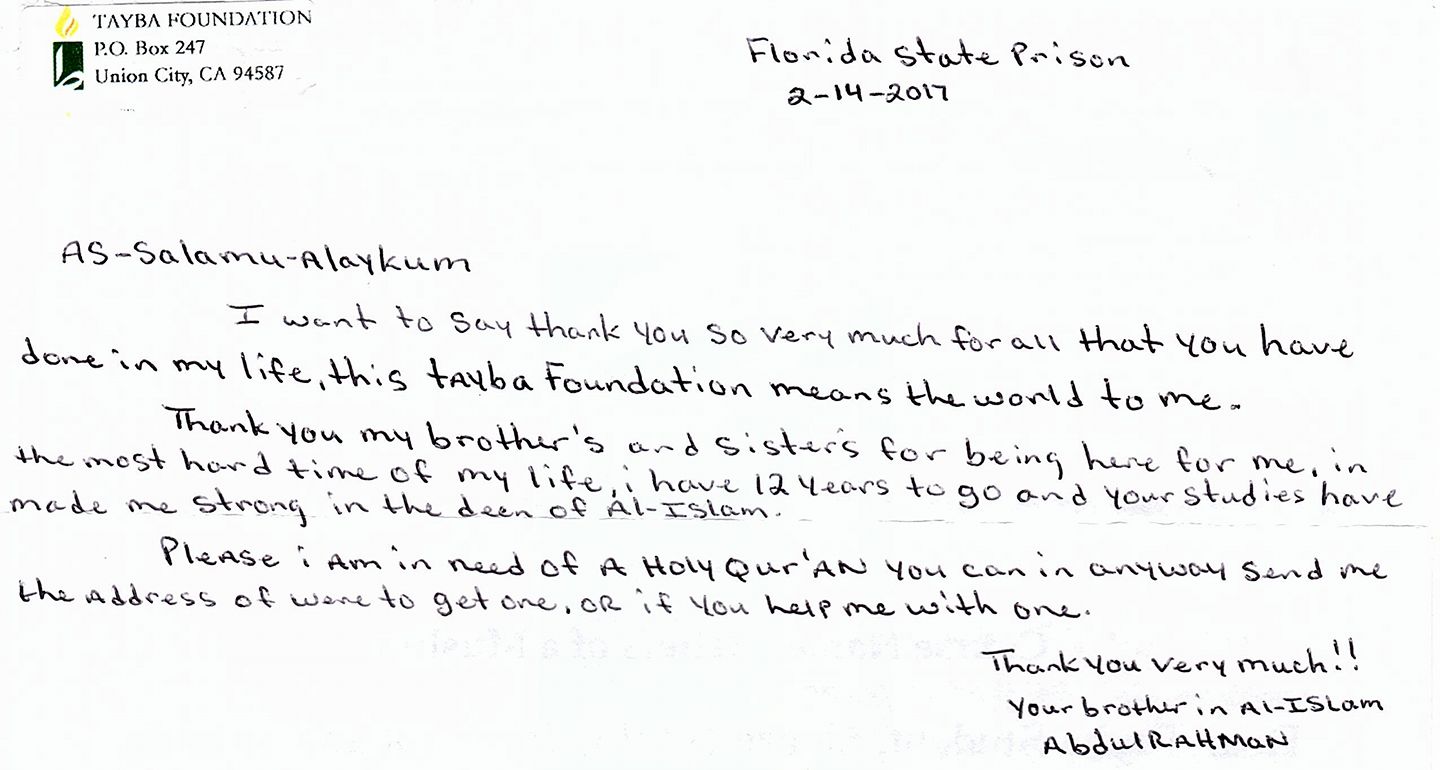 TAYBA FOUNDATION
P.O. Box 247
Union City, CA 94587
Florida State Prison
2-14-2017
AS-Salamu-Alaykum
I want to say thank you so very much for all that you have
done in my life, this tAyba Foundation means the world to me.
Thank you my brother's and sister's for being here for me, in
the most hard time of my life, i have 12 years to go and your studies have
made me strong in the deen of Al-ISlam.
PleAse i Am in need of A Holy Qur'AN you can in anyway send me
the Address of were to get one, OR if you help me with one.
Thank you very much!!
your brother in Al-ISlam
AbdulRAHMAN